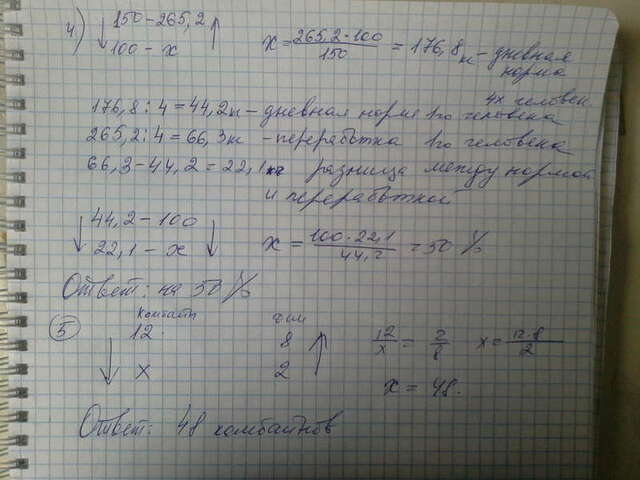 4) 150 - 265,2
100 - x
x = 265,2·100 / 150 = 176,8 н - дневная норма
4х человек
176,8 : 4 = 44,2 н - дневная норма 1го человека
265,2 : 4 = 66,3 н - переработка 1го человека
66,3 - 44,2 = 22,1 разница между нормой
и переработкой
44,2 - 100
22,1 - x
x = 100·22,1 / 44,2 = 50 %
Ответ: на 50 %
5
12 8
x 2
12/x = 2/8 x = 12·8 / 2
x = 48.
Ответ: 48 комбайнов